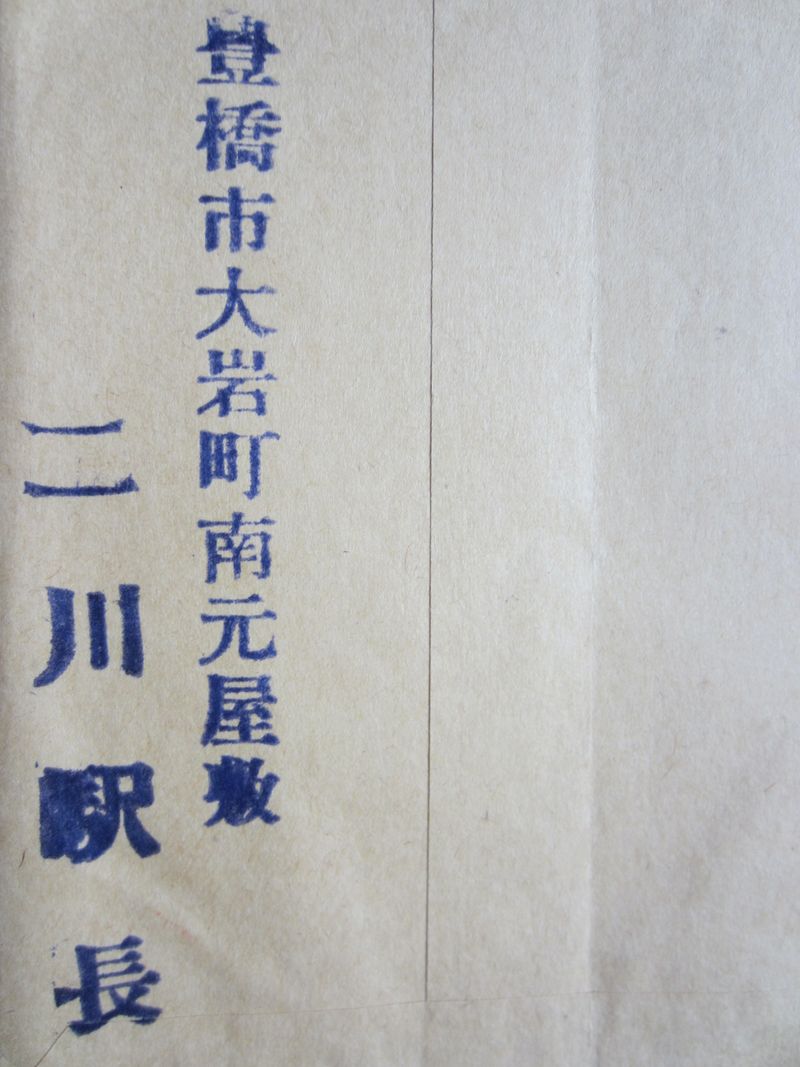 豊橋市大岩町南元屋敷
二川駅長